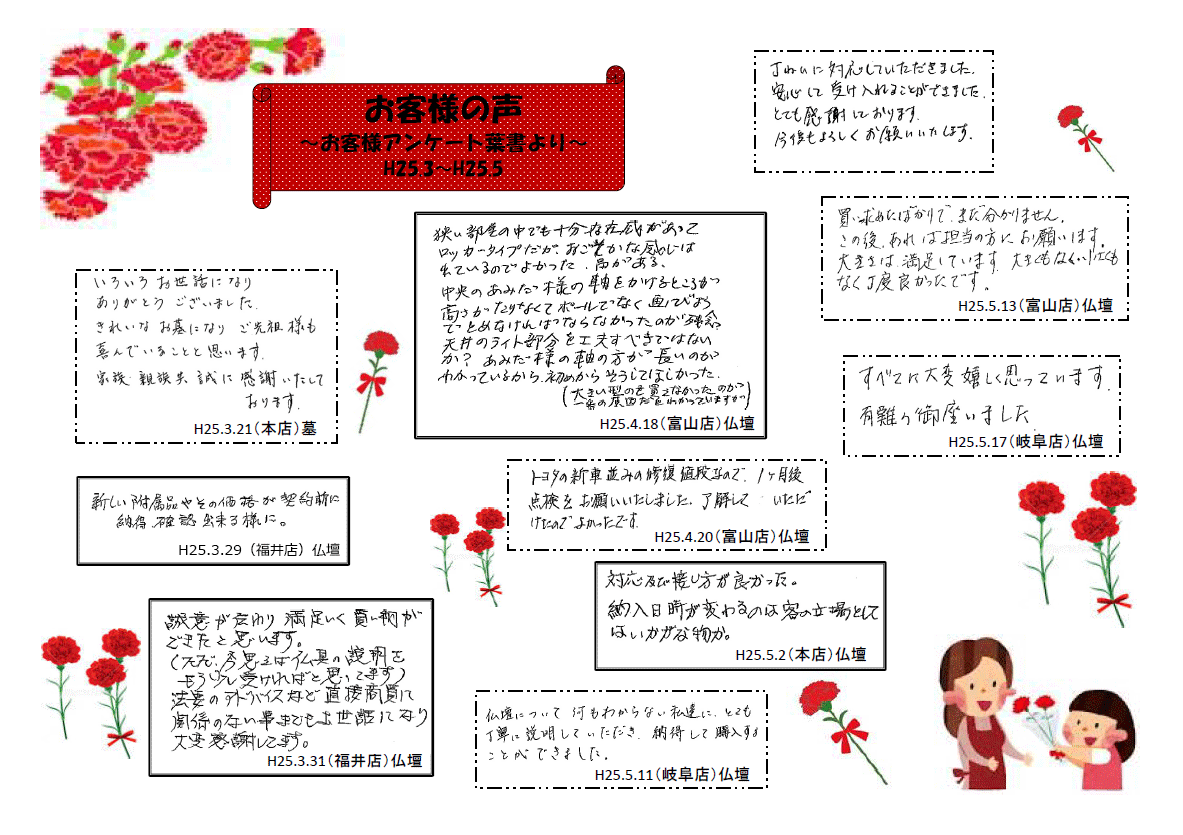 お客様の声
～お客様アンケート葉書より～
H25.3～H25.5
丁ねいに対応していただきました。
安心して受け入れることができました。
とても感謝しております。
今後もよろしくお願いいたします。
買い求めたばかりで、まだ分かりません。
この後、あれば担当の方にお願います。
大きさは、満足しています。大きくもなく、小さくも
なく丁度良かったです。
H25.5.13(富山店)仏壇
狭い部屋の中でも十分な存在感があって
ロッカータイプだが、おごそかな感じは
出ているのでよかった。高がある、
中央のあみだ様の軸をかけるところが
高さがたりなくてボールでなく画びょう
でとめなければならなかったのが残念
天井のライト部分を工夫すべきではない
か？あみだ様の軸の方が長いのが
わかっているから、初めからそうしてほしかった。
(大きい型のを買えなかったのが
一番の原因だとわかっていますが)
H25.4.18(富山店)仏壇
いろいろお世話になり
ありがとうございました。
きれいなお墓になりご先祖様も
喜んでいることと思います。
家族・親族共誠に感謝いたして
おります。
H25.3.21(本店)墓
すべてに大変嬉しく思っています。
有難う御座いました
H25.5.17(岐阜店)仏壇
トヨタの新車並みの修復値段なので、1ヶ月後
点検をお願いいたしました。了解して いただ
けたのでよかったです。
H25.4.20(富山店)仏壇
新しい附属品やその価格が契約前に
納得、確認出来る様に。
H25.3.29（福井店）仏壇
対応及び接し方が良かった。
納入日時が変わるのは客の立場として
はいかがな物か。
H25.5.2(本店)仏壇
誠意が伝わり満足いく買い物が
できたと思います。
(ただ、今思えば仏具の説明を
もう少し受ければと思ってます)
法要のアドバイスなど直接商買に
関係のない事までもお世話になり
大変感謝してます。
H25.3.31(福井店)仏壇
仏壇について何もわからない私達に、とても
丁寧に説明していただき、納得して購入する
ことができました。
H25.5.11(岐阜店)仏壇